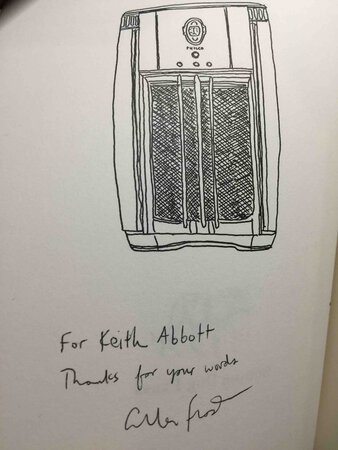 PHILCO
For Keith Abbott
Thanks for your words
Allen Frost